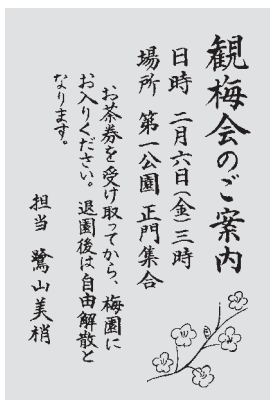 観梅会のご案内
日時 二月六日(金)三時
場所 第一公園 正門集合
お茶券を受け取ってから、梅園に
お入りください。退園後は自由解散と
なります。
担当 鷺山美梢